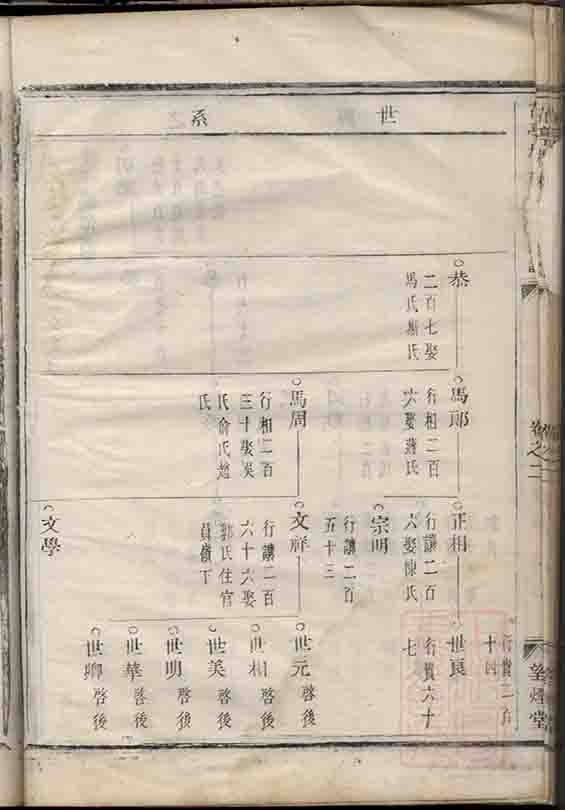 世系
恭
二百七娶
馬氏
馬郎
行相二百
六娶蔣氏
馬周
行相二百
三十娶吳
氏俞氏趙
氏
正相
行讓二百
六娶陳氏
宗明
行讓二百
五十三
文祥
行讓二百
六十六娶
郭氏住官
員嶺下
文學
行貴二百
十四
世良
行貴六十
七
世元啓後
世相啓後
世美啓後
世明啓後
世華啓後
世卿啓後
卷之二
望煙堂